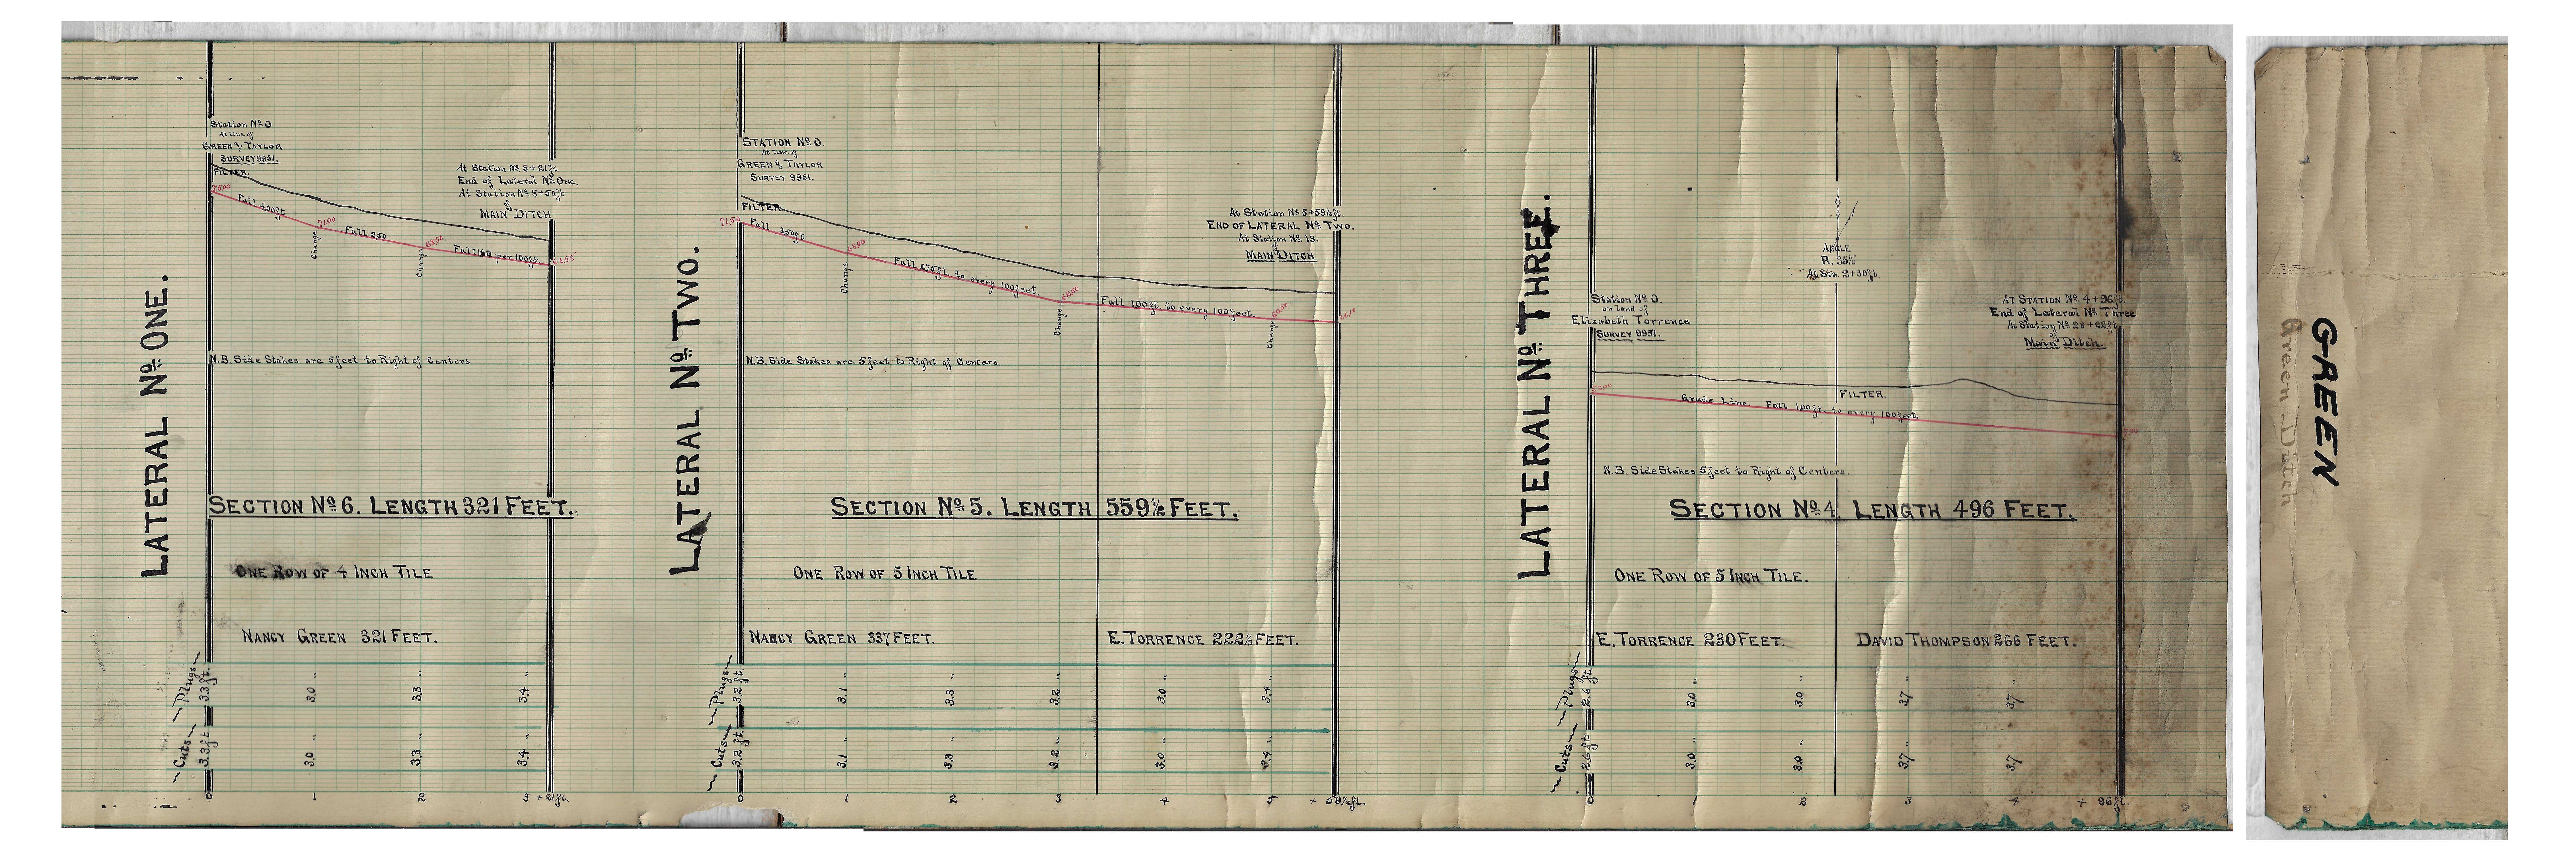 LATERAL Nº ONE.
Station Nº 0
At Line of
GREEN & TAYLOR
SURVEY 9951.
FILTER.
75.00
Fall 4.00ft
71.00
Change
Fall 2.50
68.50
Change
Fall 1.60 per 100ft
At Station Nº 3+21ft
End of Lateral Nº One.
At Station Nº 8+50ft
of
MAIN DITCH
N.B. Side Stakes are 5 feet to Right of Centers
SECTION Nº 6. LENGTH 321 FEET.
ONE ROW OF 4 INCH TILE
NANCY GREEN 321 FEET.
Plugs
3.3 ft. 3.0 " 3.3 " 3.4 "
Cuts
3.3 ft 3.0 " 3.3 " 3.4 "
0 1 2 3 + 21ft.
LATERAL Nº TWO.
STATION Nº 0.
At Line of
GREEN & TAYLOR
SURVEY 9951.
FILTER
71.50
Fall 3.50ft
68.00
Change
Fall 2.75ft. to every 100 feet.
Change
Fall 1.00ft. to every 100 feet.
Change
At Station Nº 5+59½ft.
END OF LATERAL Nº TWO.
At Station Nº 13.
of
MAIN DITCH
N.B. Side Stakes are 5 feet to Right of Centers.
SECTION Nº 5. LENGTH 559½ FEET.
ONE ROW OF 5 INCH TILE
NANCY GREEN 337 FEET. E. TORRENCE 222½ FEET.
Plugs
3.2 ft. 3.1 " 3.3 " 3.2 " 3.0 " 3.4 "
Cuts
3.2 ft. 3.1 " 3.3 " 3.2 " 3.0 " 3.4 "
0 1 2 3 4 5 + 59½ft.
LATERAL Nº THREE.
Station Nº 0.
on Land of
Elizabeth Torrence
SURVEY 9951.
ANGLE
R. 35½
At Sta. 2+30ft.
At Station Nº 4+96ft.
End of Lateral Nº Three
At Station Nº 28+22ft
of
Main Ditch.
FILTER.
Grade Line. Fall 1.00ft. to every 100 feet
N.B. Side Stakes 5 feet to Right of Centers.
SECTION Nº 4 LENGTH 496 FEET.
ONE ROW OF 5 INCH TILE.
E. TORRENCE 230 FEET. DAVID THOMPSON 266 FEET.
Plugs
2.6 ft. 3.0 " 3.0 " 3.7 " 3.7 "
Cuts
2.6 ft 3.0 " 3.0 " 3.7 " 3.7 "
0 1 2 3 4 + 96ft.
GREEN
Green Ditch